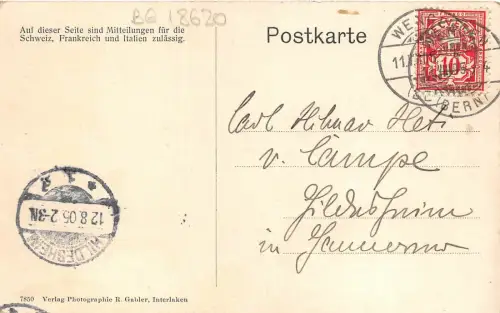 BG 18620
Auf dieser Seite sind Mitteilungen für die
Schweiz, Frankreich und Italien zulässig.
Postkarte
WE
11.
10
(BERN)
Carl Hilmar
v. Campe
Hildesheim
in Hannover
12.8.05.2-3N.
HILDESHEIM
7850 Verlag Photographie R. Gabler, Interlaken